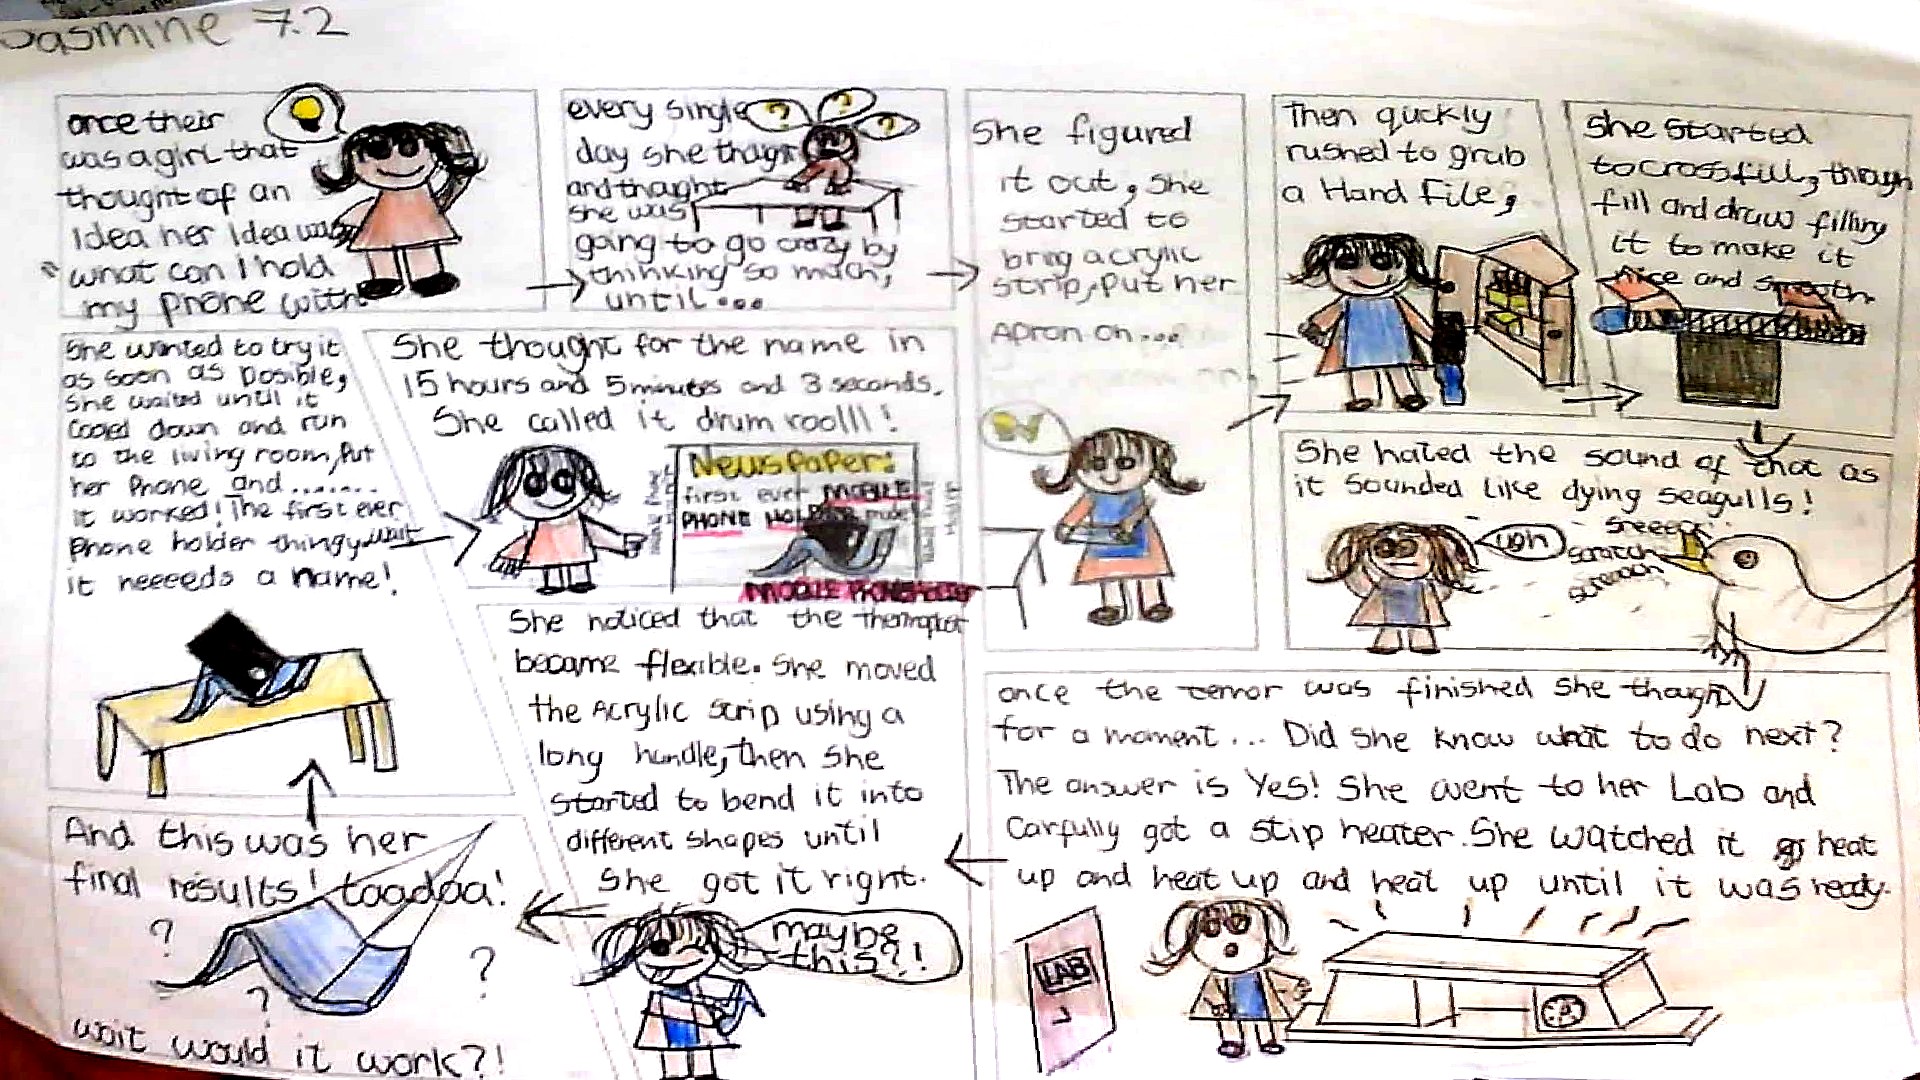 Jasmine 7.2
once their
was a girl that
thought of an
Idea her Idea was
"what can I hold
my phone with
every single
day she thaght
and thaught
she was
going to go crazy by
thinking so much,
until...
?
?
?
She figured
it out, she
started to
bring acrylic
strip, put her
Apron on...
Then quckly
rushed to grab
a Hand File,
she started
to crossfill, through
fill and draw filling
it to make it
nice and smooth.
She hated the sound of that as
it sounded like dying seagulls!
ugh
scratch
once the terror was finished she thaught
for a moment... Did she know what to do next?
The answer is Yes! She went to her Lab and
Carfully got a stip heater. She watched it heat
up and heat up and heat up until it was ready.
LAB
She noticed that the
became flexible. She moved
the Acrylic scrip using a
long handle, then she
started to bend it into
different shapes until
she got it right.
maybe
this?!
And this was her
final results! taadaa!
?
?
?
wait would it work?!
She wanted to try it
as soon as posible,
she waited until it
cooled down and run
to the living room, Put
her Phone and........
it worked! The first ever
Phone holder thingy wait
it neeeeds a name!
She thought for the name in
15 hours and 5 minutes and 3 seconds.
She called it drum roolll!
Newspaper:
first ever MOBILE
PHONE HOLDER made!
MOBILE PHONE HOLDER